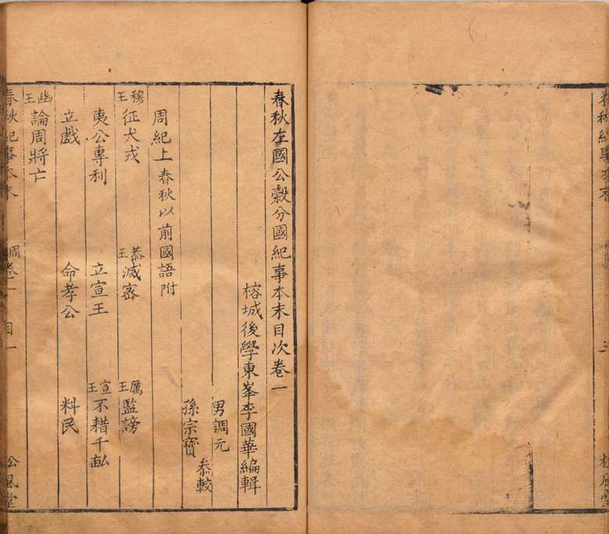 春秋左國公穀分國紀事本末目次卷一
榕城後學東峯李國華編輯
男調元
孫宗寶
恭較
周紀上 春秋以前國語附
穆王征犬戎 恭王滅密 厲王監謗
夷公專利 立宣王 宣王不耤千畝
立戲 命孝公 料民
幽王論周將亡
春秋紀事本末 周卷一 目一